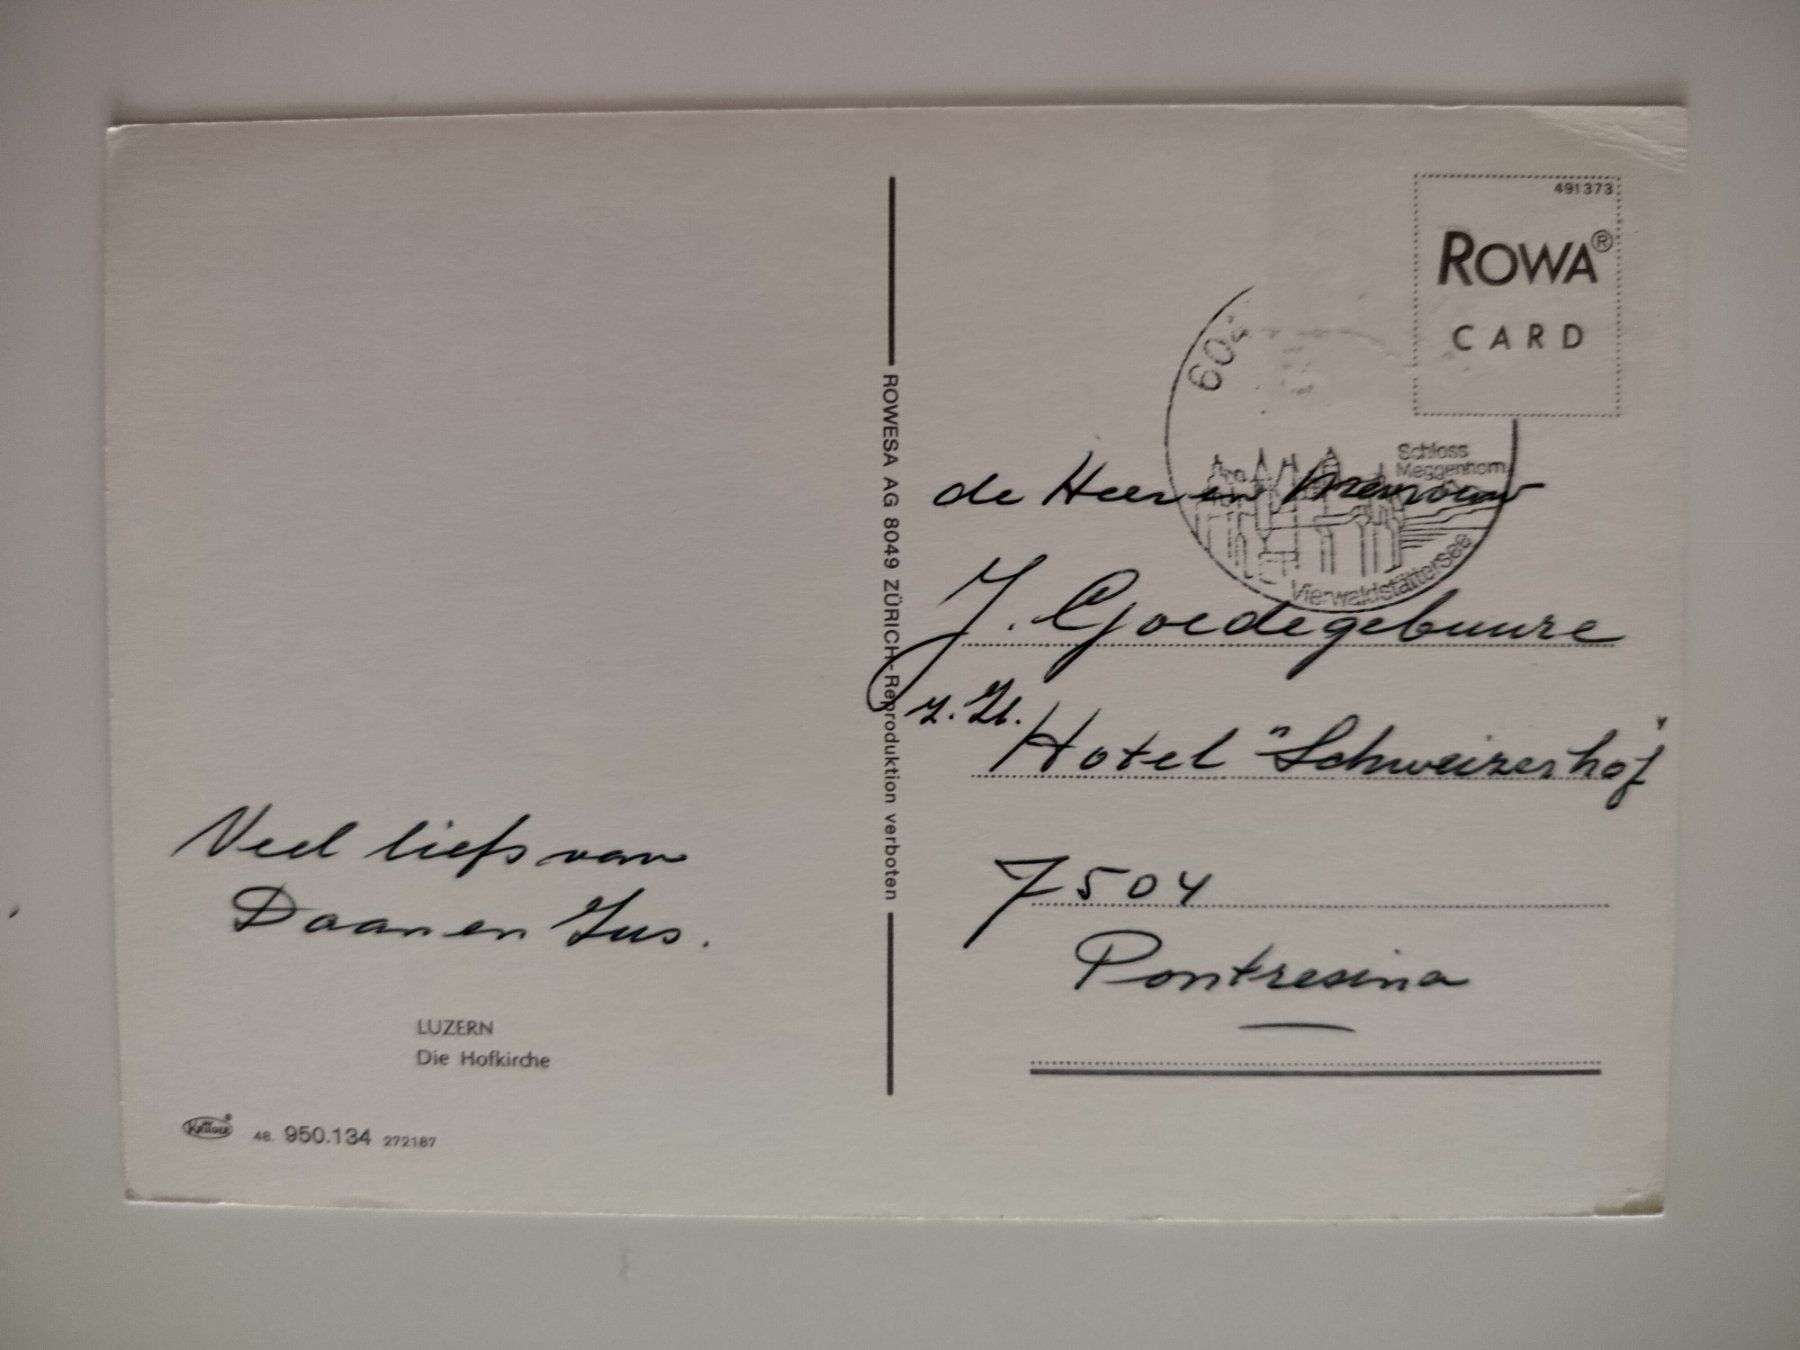 Veel liefs van
Daan en Gus.
LUZERN
Die Hofkirche
KRÜGER
48. 950.134 272187
ROWESA AG 8049 ZÜRICH-Reproduktion verboten
491373
ROWA®
CARD
609
Schloss
Meggenhorn
Vierwaldstättersee
de Heer en Mevrouw
J. Goedegebuure
z. Zt.
Hotel "Schweizerhof"
7504
Pontresina